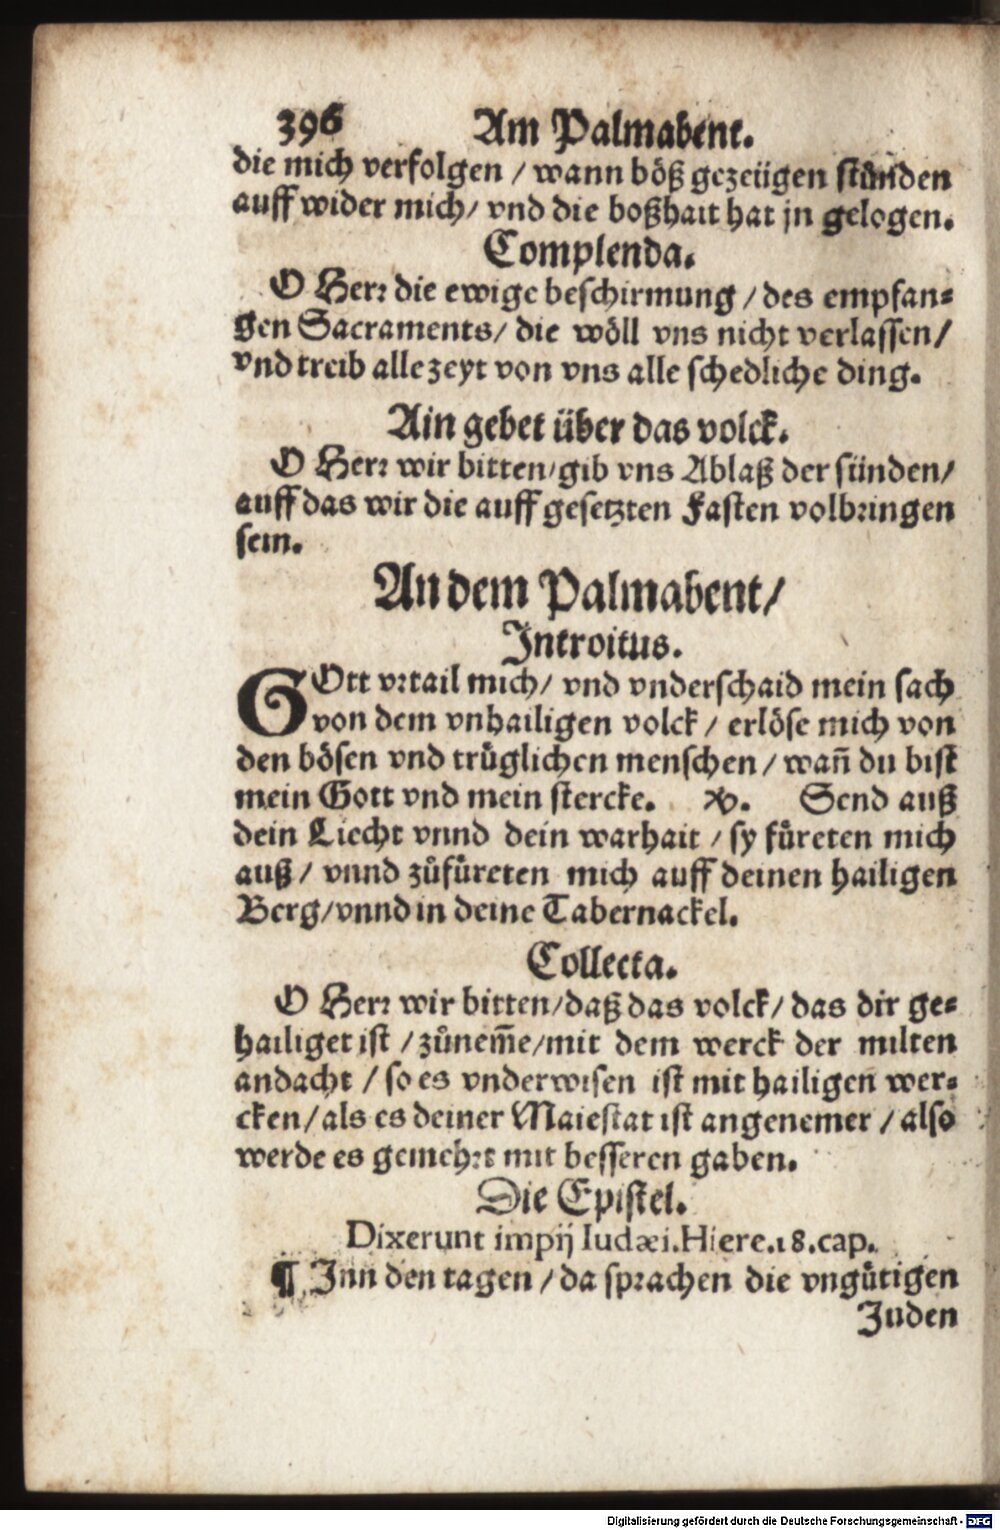 396 Am Palmabent.
die mich verfolgen / wann böß gezeügen stůnden
auff wider mich / vnd die boßhait hat jn gelogen.
Complenda.
O Herr die ewige beschirmung / des empfan⸗
gen Sacraments / die wöll vns nicht verlassen /
vnd treib alle zeyt von vns alle schedliche ding.
Ain gebet über das volck.
O Herr wir bitten / gib vns Ablaß der sünden /
auff das wir die auff gesetzten Fasten volbringen
sein.
An dem Palmabent /
Introitus.
GOtt vrtail mich / vnd vnderschaid mein sach
von dem vnhailigen volck / erlöse mich von
den bösen vnd trüglichen menschen / wañ du bist
mein Gott vnd mein stercke. ℣. Send auß
dein Liecht vnnd dein warhait / sy füreten mich
auß / vnnd zůfüreten mich auff deinen hailigen
Berg / vnnd in deine Tabernackel.
Collecta.
O Herr wir bitten / daß das volck / das dir ge⸗
hailiget ist / zůnem̃e / mit dem werck der milten
andacht / so es vnderwisen ist mit hailigen wer⸗
cken / als es deiner Maiestat ist angenemer / also
werde es gemehrt mit besseren gaben.
Die Epistel.
Dixerunt impij Iudæi. Hiere. 18. cap.
¶ Inn den tagen / da sprachen die vngütigen
Juden
Digitalisierung gefördert durch die Deutsche Forschungsgemeinschaft - DFG